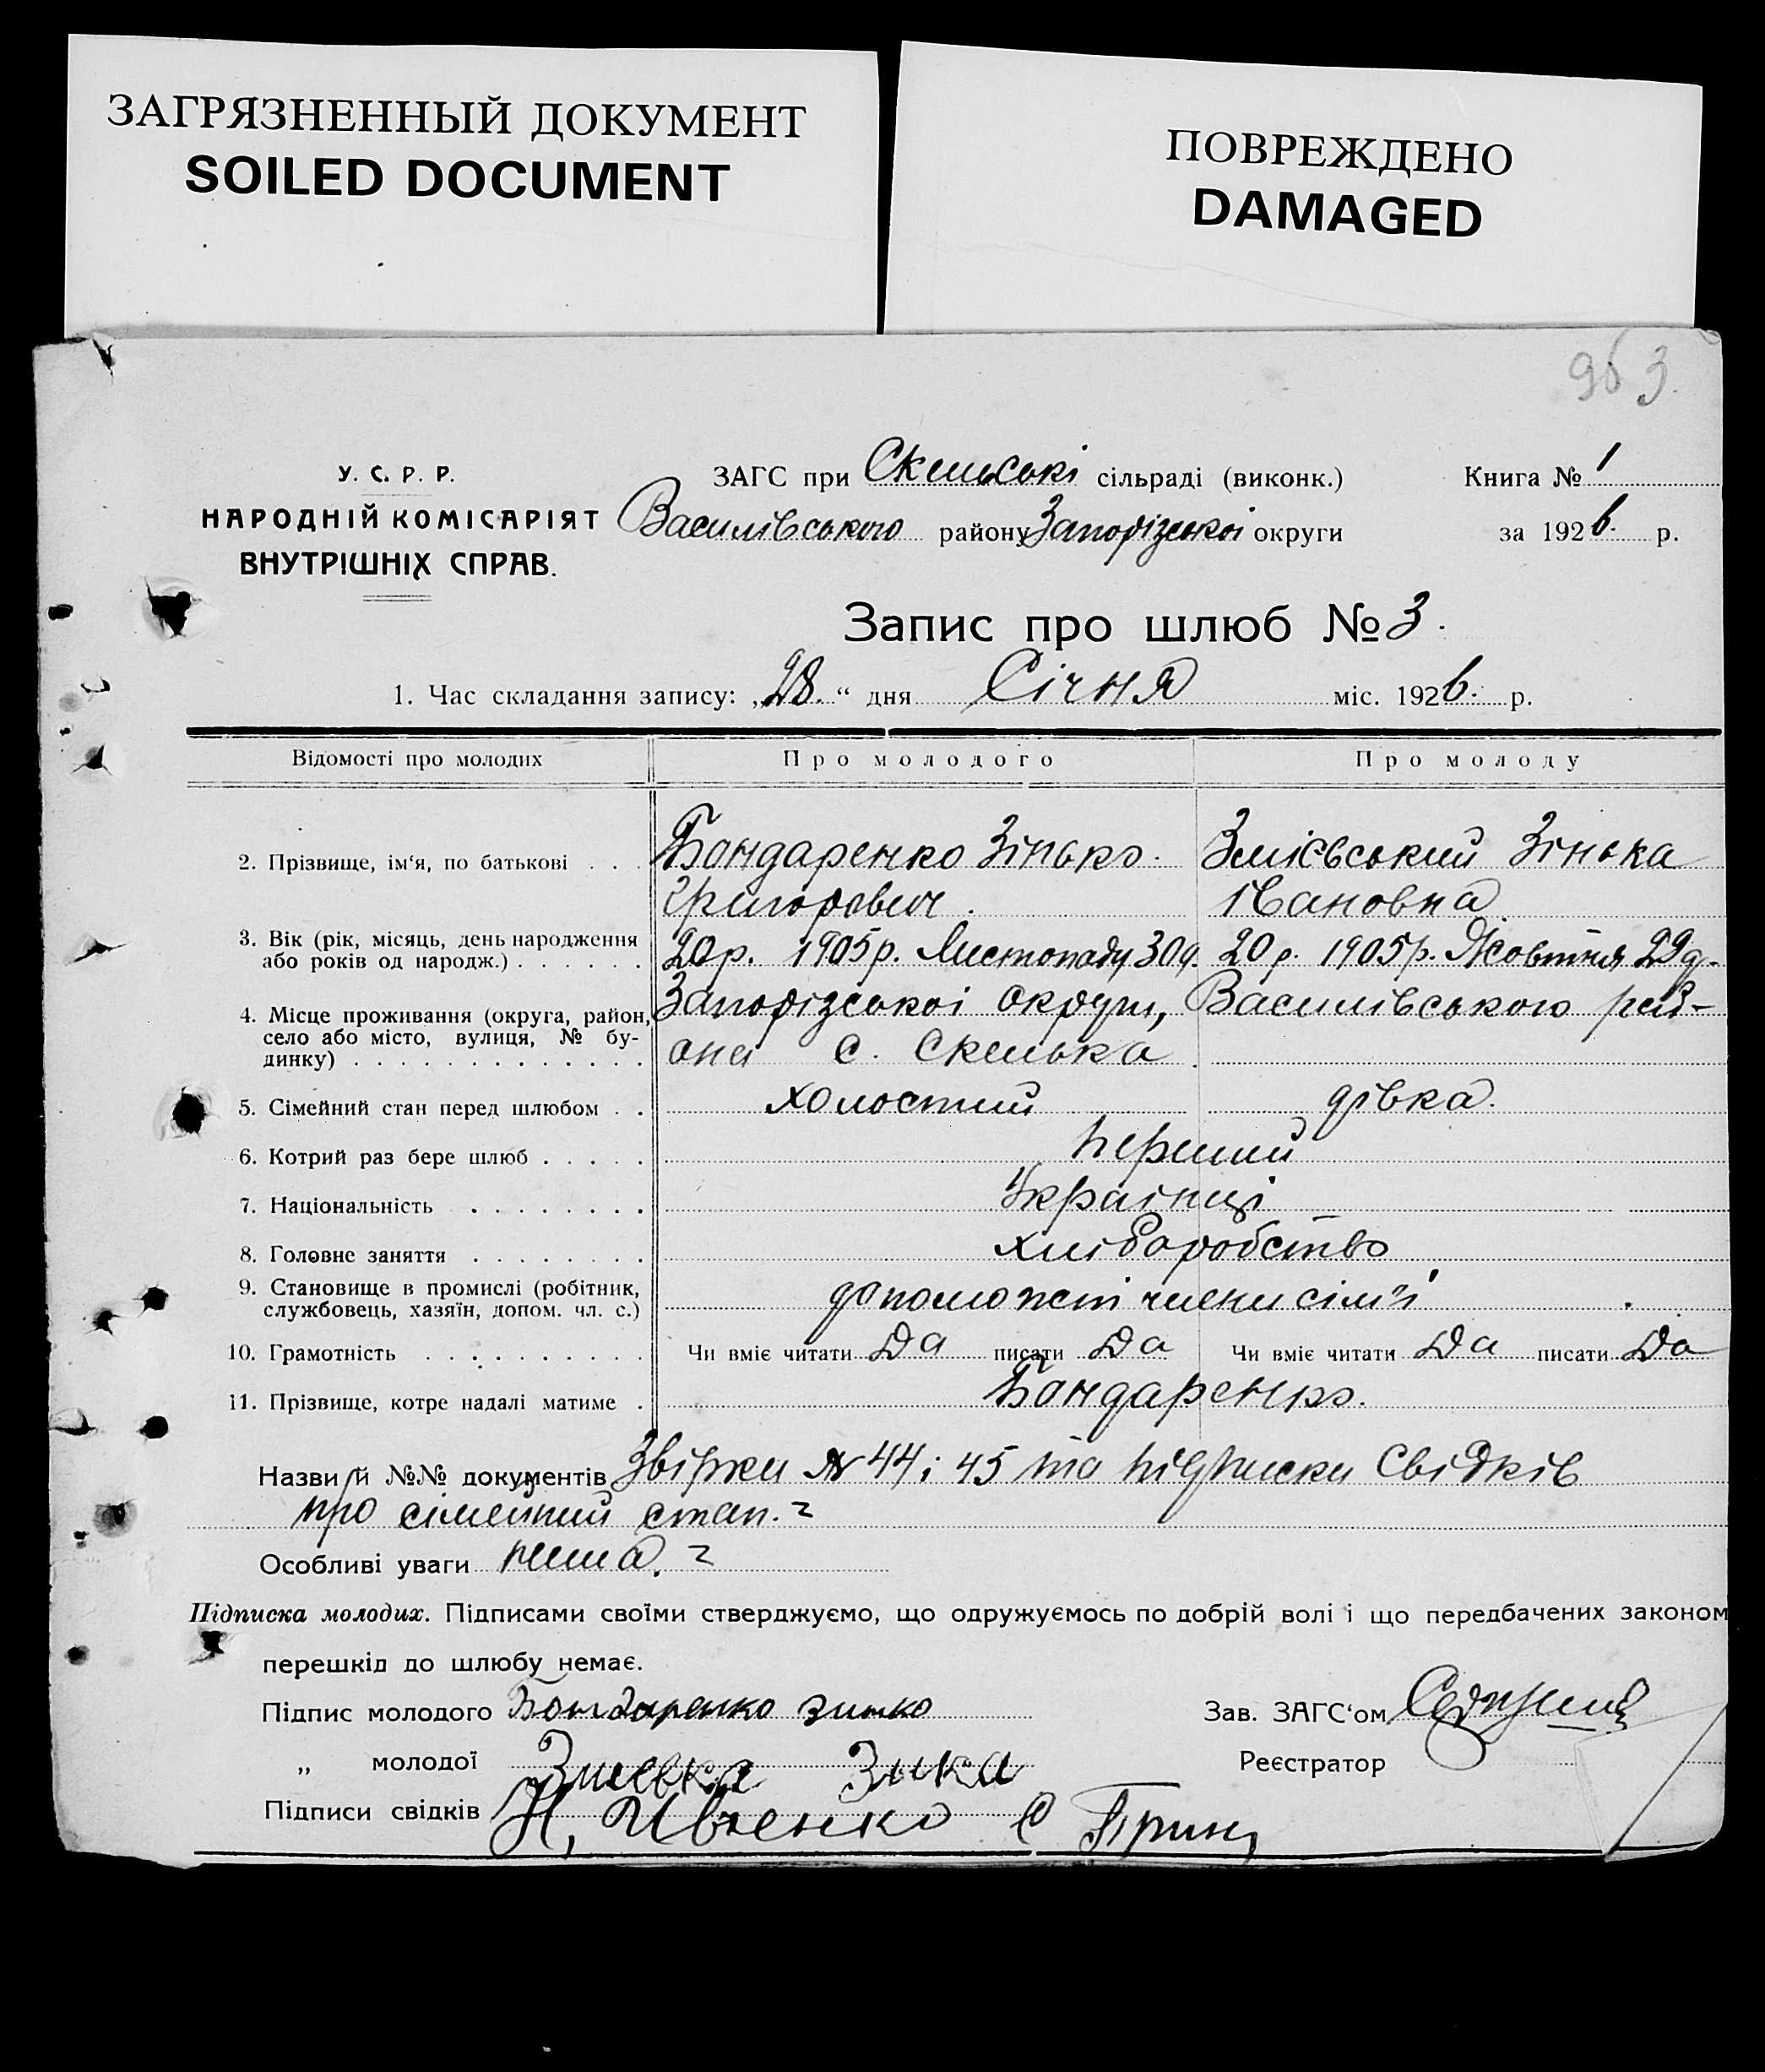 ЗАГРЯЗНЕННЫЙ ДОКУМЕНТ
SOILED DOCUMENT
ПОВРЕЖДЕНО
DAMAGED
963
У. С. Р. Р.
НАРОДНІЙ КОМІСАРІЯТ
ВНУТРІШНІХ СПРАВ.
ЗАГС при Скельські сільраді (виконк.)
Василівського району Запорізькоі округи
Книга № 1
за 1926. р.
Запис про шлюб № 3.
1. Час складання запису: „28.“ дня Січня міс. 1926. р.
Відомості про молодих Про молодого Про молоду
2. Прізвище, ім‘я, по батькові . . . Бондаренко Зінько. Змієвський Зінька
Григорович. Ивановна.
3. Вік (рік, місяць, день народження
або років од народж.) . . . . . . 20 р. 1905 р. Листопаду 30 д. 20 р. 1905 р. Жовтня 29 д.
4. Місце проживання (округа, район, Запорізськоі округи, Василівського рай-
село або місто, вулиця, № бу-
динку) . . . . . . . . . . . . . она с. Скелька.
5. Сімейний стан перед шлюбом . . холостий дівка.
6. Котрий раз бере шлюб . . . . . перший
7. Національність . . . . . . . . Украінці
8. Головне заняття . . . . . . . . хліборобство
9. Становище в промислі (робітник,
службовець, хазяїн, допом. чл. с.) допоможні члени сім'ї.
10. Грамотність . . . . . . . . . . Чи вміє читати Да писати Да Чи вміє читати Да писати Да
11. Прізвище, котре надалі матиме . Бондаренко.
Назви й №№ документів Звірки № 44 і 45 та підписки свідків
про сімейний стан.
Особливі уваги нема.
Підписка молодих. Підписами своїми стверджуємо, що одружуємось по добрій волі і що передбачених законом
перешкід до шлюбу немає.
Підпис молодого Бондаренко зинко
Зав. ЗАГС‘ом
„ молодої Змиевка Зика
Реєстратор
Підписи свідків Н, Ивченко С